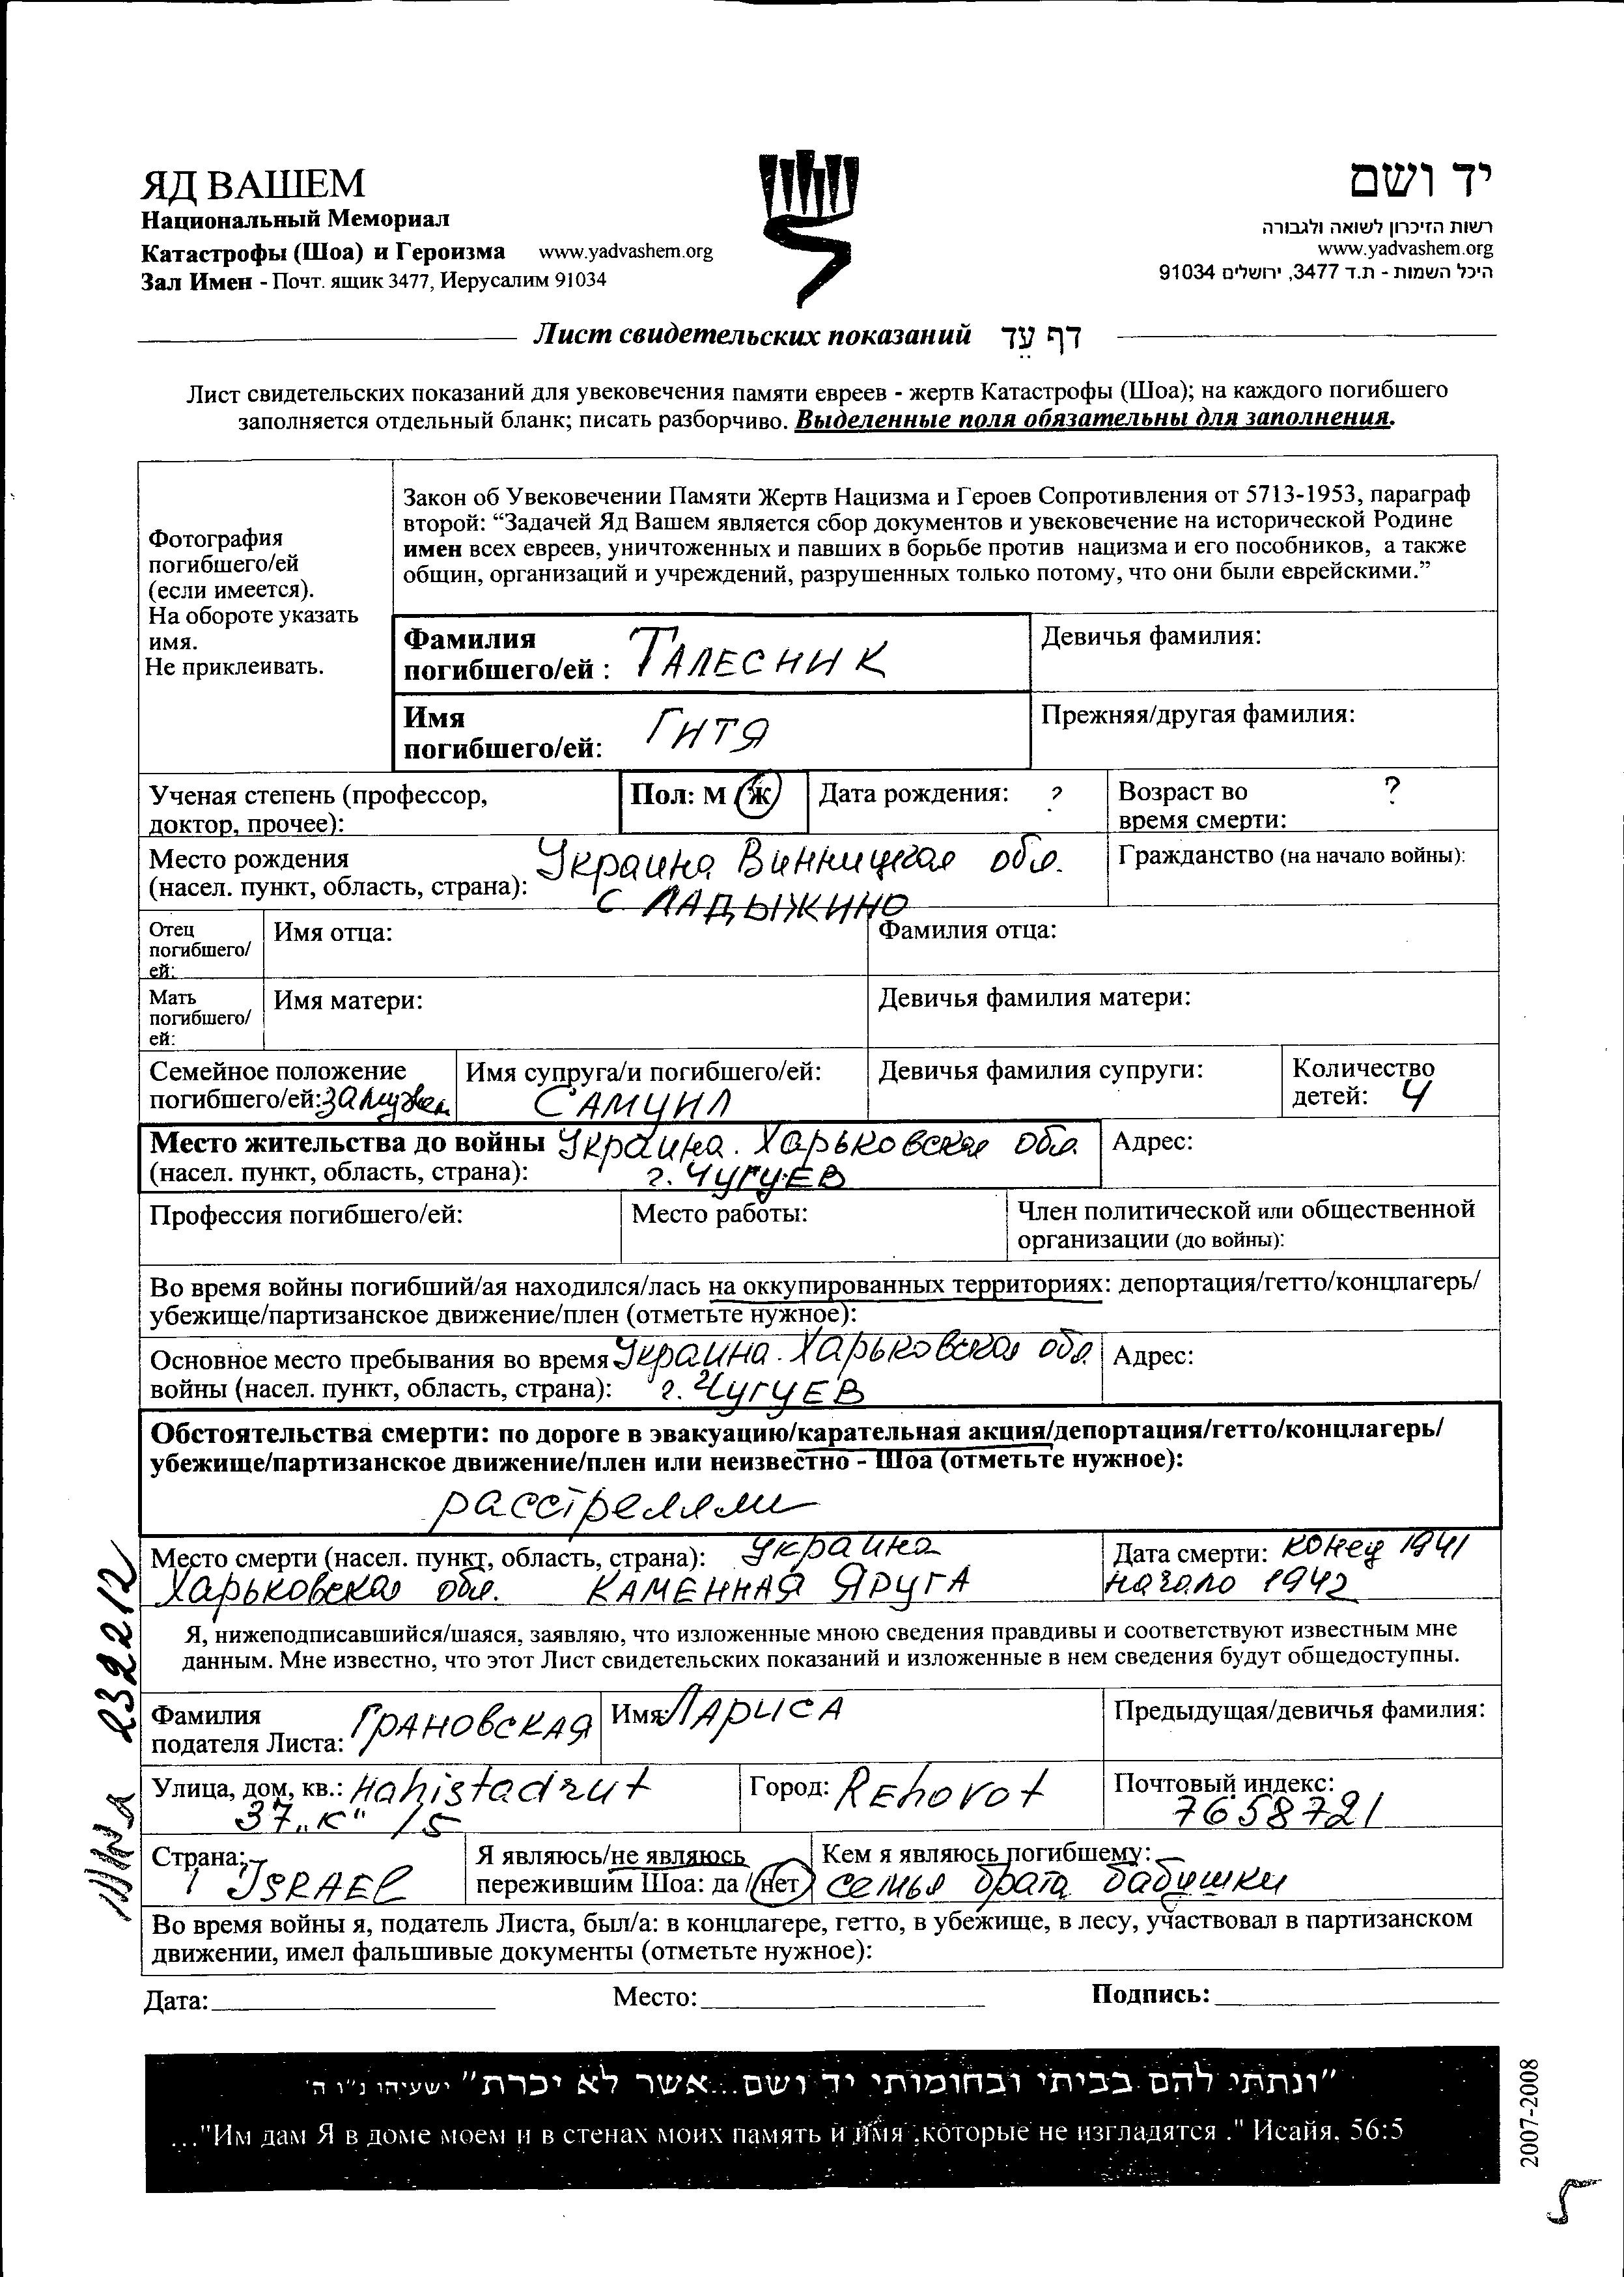 ЯД ВАШЕМ
Национальный Мемориал
Катастрофы (Шоа) и Героизма www.yadvashem.org
Зал Имен - Почт. ящик 3477, Иерусалим 91034
יד ושם
רשות הזיכרון לשואה ולגבורה
www.yadvashem.org
היכל השמות - ת.ד 3477, ירושלים 91034
Лист свидетельских показаний דף עֵד
Лист свидетельских показаний для увековечения памяти евреев - жертв Катастрофы (Шоа); на каждого погибшего
заполняется отдельный бланк; писать разборчиво. Выделенные поля обязательны для заполнения.
Фотография
погибшего/ей
(если имеется).
На обороте указать
имя.
Не приклеивать.
Закон об Увековечении Памяти Жертв Нацизма и Героев Сопротивления от 5713-1953, параграф
второй: “Задачей Яд Вашем является сбор документов и увековечение на исторической Родине
имен всех евреев, уничтоженных и павших в борьбе против нацизма и его пособников, а также
общин, организаций и учреждений, разрушенных только потому, что они были еврейскими.”
Фамилия
погибшего/ей : ТАЛЕСНИК
Девичья фамилия:
Имя
погибшего/ей: ГИТЯ
Прежняя/другая фамилия:
Ученая степень (профессор,
доктор, прочее):
Пол: М Ж
Дата рождения: ?
Возраст во ?
время смерти:
Место рождения Украина Винницкая обл.
(насел. пункт, область, страна): с ЛАДЫЖИНО
Гражданство (на начало войны):
Отец
погибшего/
ей:
Имя отца:
Фамилия отца:
Мать
погибшего/
ей:
Имя матери:
Девичья фамилия матери:
Семейное положение
погибшего/ей: замужем
Имя супруга/и погибшего/ей:
САМУИЛ
Девичья фамилия супруги:
Количество
детей: 4
Место жительства до войны Украина. Харьковская обл.
(насел. пункт, область, страна): г. ЧУГУЕВ
Адрес:
Профессия погибшего/ей:
Место работы:
Член политической или общественной
организации (до войны):
Во время войны погибший/ая находился/лась на оккупированных территориях: депортация/гетто/концлагерь/
убежище/партизанское движение/плен (отметьте нужное):
Основное место пребывания во время Украина. Харьковская обл.
войны (насел. пункт, область, страна): г. Чугуев
Адрес:
Обстоятельства смерти: по дороге в эвакуацию/карательная акция/депортация/гетто/концлагерь/
убежище/партизанское движение/плен или неизвестно - Шоа (отметьте нужное):
расстреляли
Место смерти (насел. пункт, область, страна): Украина
Харьковская обл. КАМЕННАЯ ЯРУГА
Дата смерти: конец 1941
начало 1942
Я, нижеподписавшийся/шаяся, заявляю, что изложенные мною сведения правдивы и соответствуют известным мне
данным. Мне известно, что этот Лист свидетельских показаний и изложенные в нем сведения будут общедоступны.
Фамилия
подателя Листа: ГРАНОВСКАЯ
Имя: ЛАРИСА
Предыдущая/девичья фамилия:
Улица, дом, кв.: Hahistadrut
37 „K“ /5
Город: REhovot
Почтовый индекс:
7658721
Страна:
ISRAEL
Я являюсь/не являюсь
пережившим Шоа: да / нет
Кем я являюсь погибшему:
семья брата бабушки
Во время войны я, податель Листа, был/а: в концлагере, гетто, в убежище, в лесу, участвовал в партизанском
движении, имел фальшивые документы (отметьте нужное):
Дата: Место: Подпись:
"ונתתי להם בביתי ובחומותי יד ושם...אשר לא יכרת" ישעיהו נ"ו ה'
..."Им дам Я в доме моем и в стенах моих память и имя ,которые не изгладятся ." Исайя, 56:5
2007-2008
232212
5